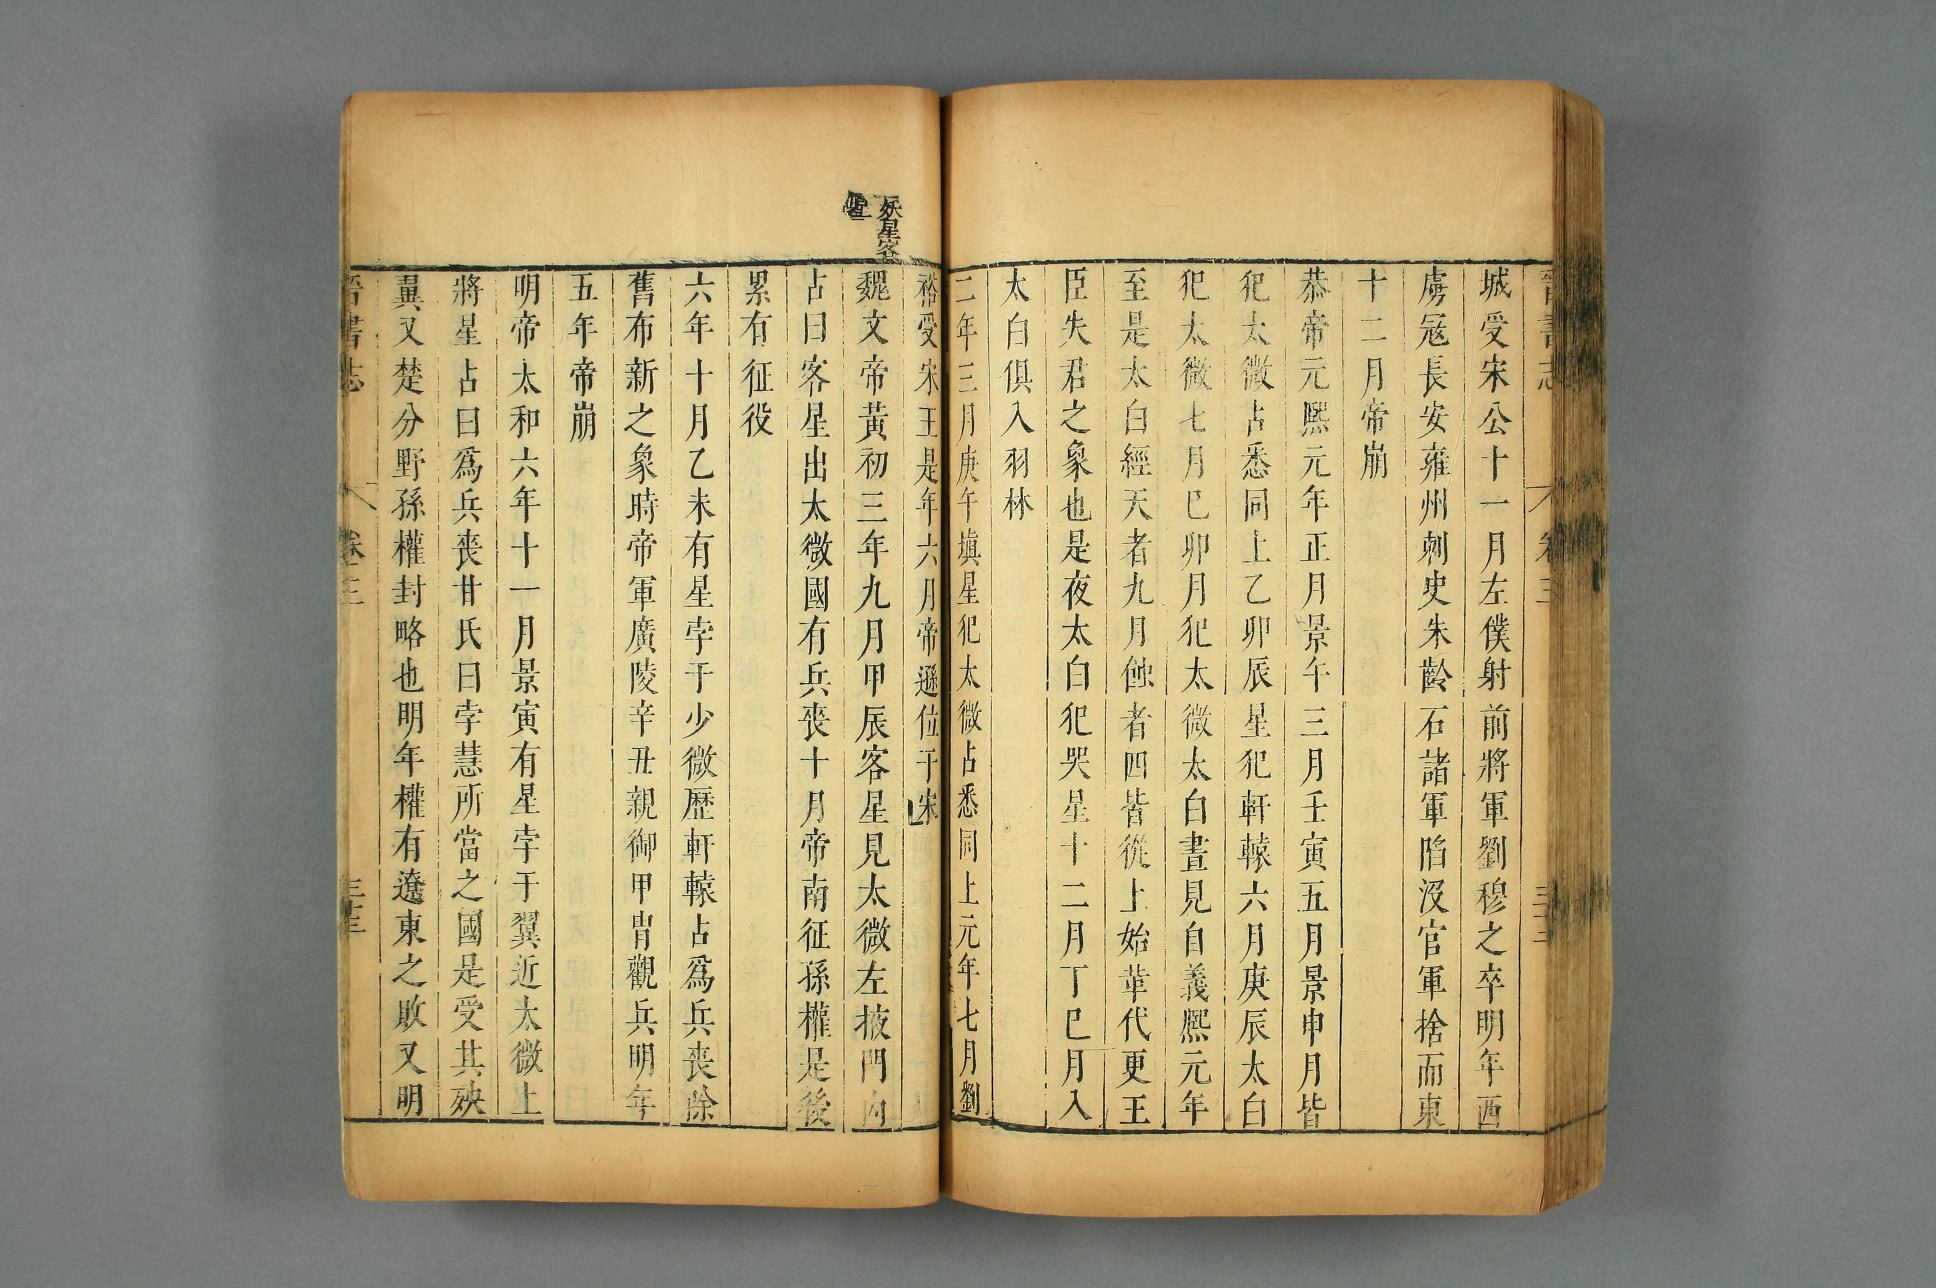 晉書志
卷三
三十二
城受宋公十一月左僕射前將軍劉穆之卒明年西
虜寇長安雍州刺史朱齡石諸軍陷没官軍捨而東
十二月帝崩
恭帝元熙元年正月景午三月壬寅五月景申月皆
犯太微占悉同上乙卯辰星犯軒轅六月庚辰太白
犯太微七月巳卯月犯太微太白晝見自義熙元年
至是太白經天者九月蝕者四皆從上始革代更王
臣失君之象也是夜太白犯哭星十二月丁巳月入
太白俱入羽林
二年三月庚午塡星犯太微占悉同上元年七月劉
裕受宋王是年六月帝遜位于宋
妖星客
星
魏文帝黃初三年九月甲辰客星見太微左掖門内
占曰客星出太微國有兵喪十月帝南征孫權是後
累有征役
六年十月乙未有星孛于少微歷軒轅占爲兵喪除
舊布新之象時帝軍廣陵辛丑親御甲冑觀兵明年
五年帝崩
明帝太和六年十一月景寅有星孛于翼近太微上
將星占曰爲兵喪甘氏曰孛慧所當之國是受其殃
翼又楚分野孫權封略也明年權有遼東之敗又明
晉書志
卷三
三十三